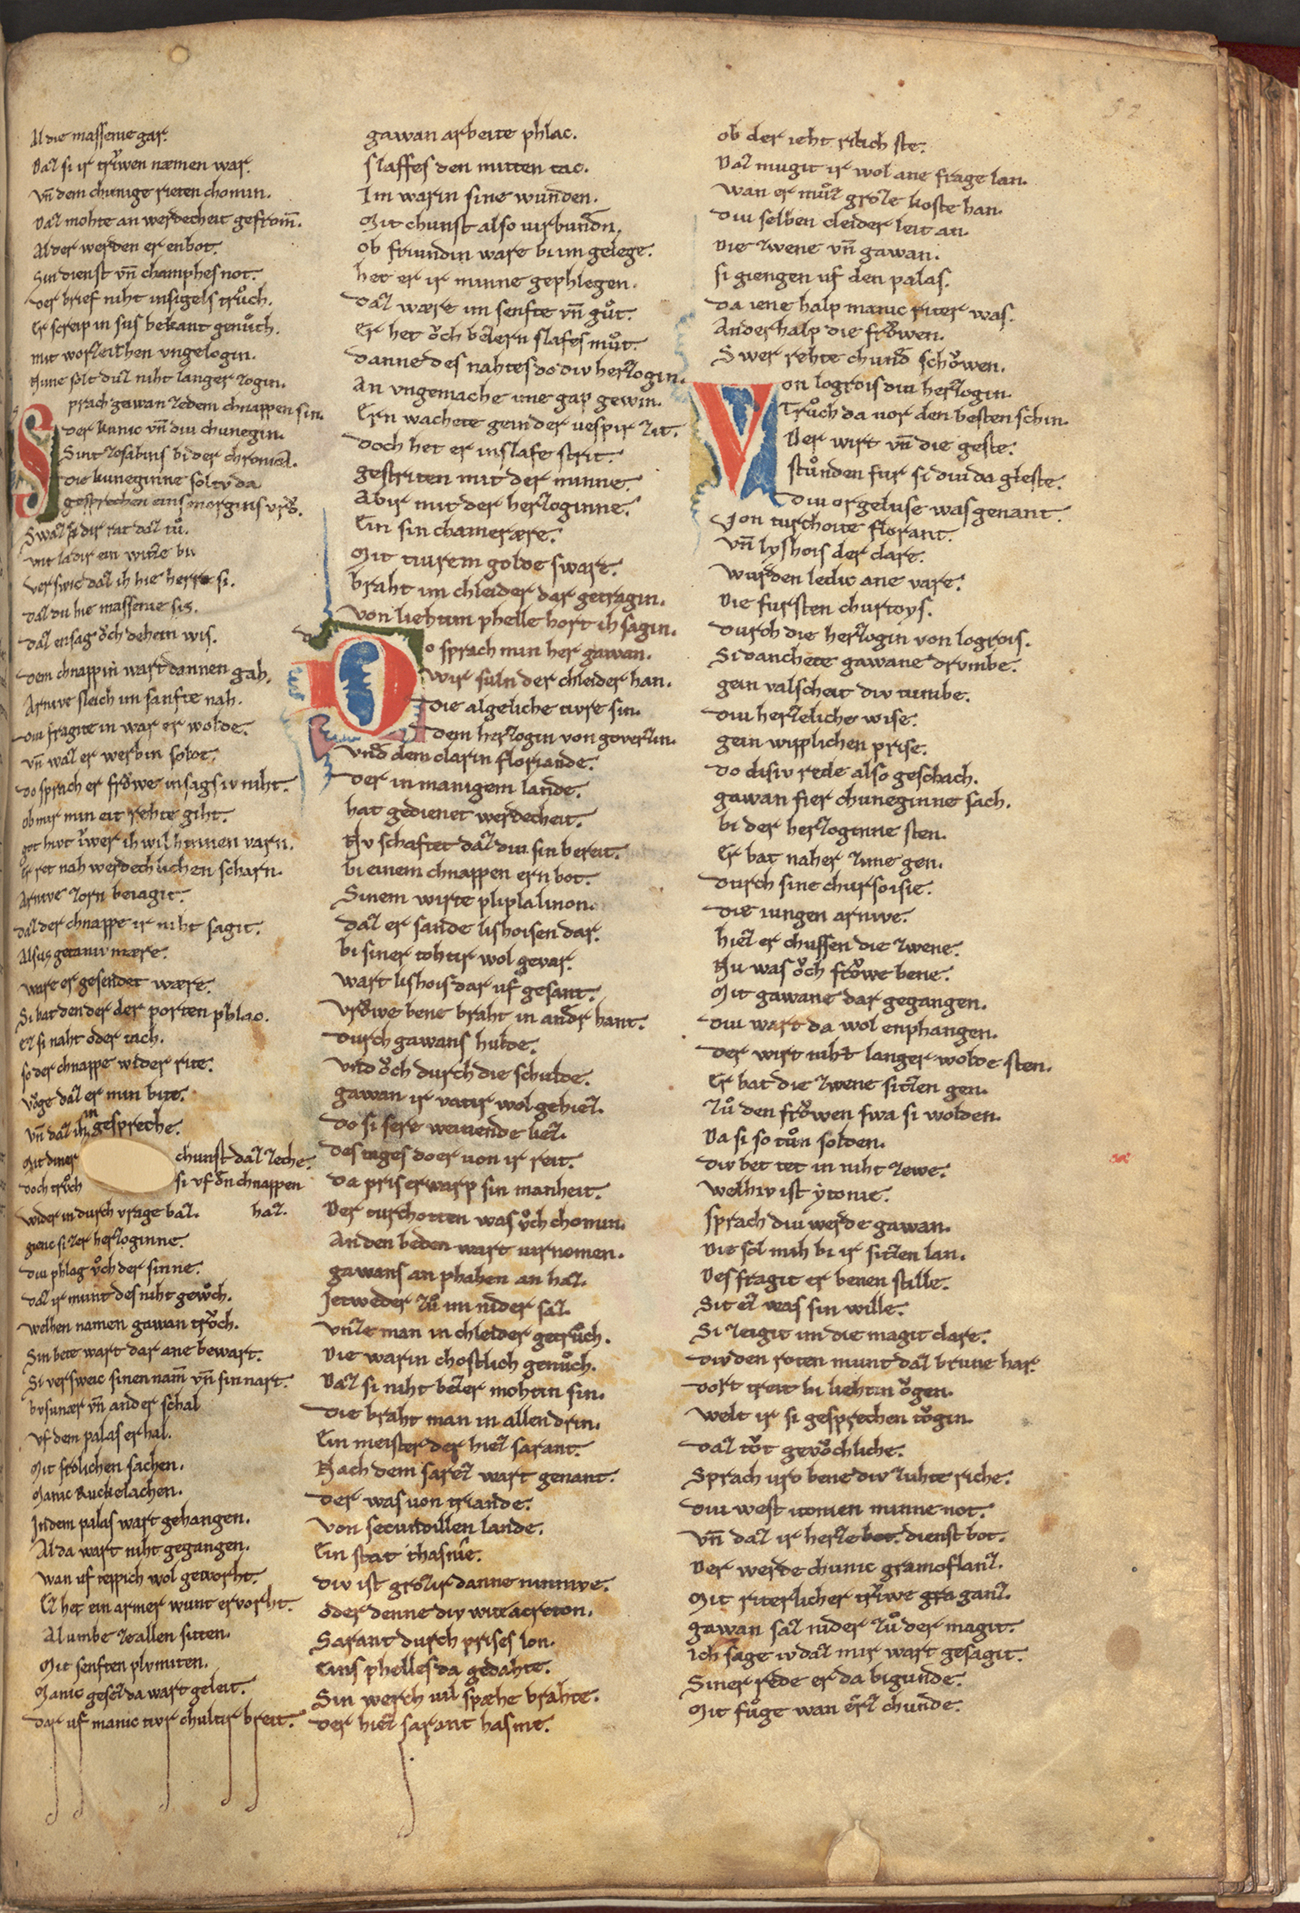 Al die massenie gar.
Daz si ir triwen næmen war.
vn̄ dem chunige rieten chomin.
Daz mohte an werdecheit gefrom̄.
Al der werden er enbot.
Sin dienst vn̄ champhes not.
Der brief niht insigels trůch.
Er screip in sus bekant genůch.
mit worzeichen vngelogin.
Nune solt duz niht langer zogin.
Sprach gawan zedem chnappen sin.
Der kunic vn̄ diu chunegin.
Sint zosabins bi der chronica.
Die kuneginne soltv da
gesprechen eins morgins vrů.
Swaz si dir rat daz tů.
vnt la dir ein witze bi
verswic daz ih hie herre si.
daz du hie massenie sis.
daz ensag ǒch dehein wis.
dem chnappin wart dannen gah.
Arnive sleich im sanfte nah.
diu fragite in war er wolde.
vn̄ waz er werbin solde.
do sprach er frǒwe insagsiv niht.
ob mir min eit rehte giht.
got hivt iwer ih wil hinnen varn.
Er reit nah werdechlichen scharn.
Arnive zorn beiagit.
daz der chnappe ir niht sagit.
Alsus getaniv mære.
ware er gesendet wære.
Si bat den der der porten phlac.
Ez si naht oder tach.
so der chnappe wider rite.
vǒge daz er min bite.
vn̄ daz ihn gespreche.
Mit diner chunst daz zeche.
doch trůch si vf dn chnappen
haz.
wider in durch vrage baz.
gienc si zer herzoginne.
diu phlag ǒch der sinne.
daz ir munt des niht gewůch.
welhen namen gawan trůch.
Sin bete wart dar ane bewart.
Si versweic sinen nam̄ vn̄ sin art.
busunær vn̄ ander schal
vf dem palas erhal.
Mit frolichen sachen.
Manic Ruckelachen.
In dem palas wart gehangen.
Alda wart niht gegangen.
wan uf teppich wol geworht.
Ez het ein armer wirt ervorht.
Al umbe zeallen siten.
Mit senften plvmiten.
Manic gesez da wart geleit.
Dar uf manic tivr chultir breit.
gawan arbeite phlac.
slaffes den mitten tac.
Im warin sine wunden.
Mit chunst also virbundn.
ob friundin ware bi im gelege.
het er ir minne gephlegen.
daz wære im senfte vn̄ gůt.
Er het ǒch bezern slafes můt.
danne des nahtes do div herzogin.
An vngemache ime gap gewin.
Ern wachete gein der vespir zit.
doch het er in slafe strit.
gestriten mit der minne.
Abir mit der herzoginne.
Ein sin chamerære.
Mit tiurem golde sware.
braht im chleider dar getragin.
von liehtim phelle hort ih sagin.
Do sprach min her gawan.
wir suln der chleider han.
die algeliche tivre sin.
dem herzogin von goverzin.
vnd dem clarin floriande.
der in manigem lande.
hat gedienet werdecheit.
Nv schaffet daz diu sin bereit.
bi einem chnappen ern bot.
Sinem wirte pliplalinon.
daz er sande lishoisen dar.
bi siner tohtir wol gevar.
wart lishois dar uf gesant.
vrǒwe bene braht in andr hant.
durch gawans hulde.
vnd ǒch durch die schulde.
gawan ir vatir wol gehiez.
do si sere weinende liez.
des tages do er von ir reit.
da pris erwarp sin manheit.
Der turchoiten was ǒch chomin.
An den beden wart virnomen.
gawans an phahen an haz.
Jetweder zů im nider saz.
vnze man in chleider getrůch.
Die warin chostlich genůch.
Daz si niht bezer mohtin sin.
die braht man in allen drin.
Ein meister der hiez sarant.
Nach dem sarez wart genant.
der was von triande.
von secundillen lande.
Ein stat thasme.
div ist grozir danne ninnive.
oder denne div wite acreton.
Sarant durch prises lon.
Eins phelles da gedahte.
Sin werch vil spæhe brahte.
Der hiez sarant hasme.
ob der ieht rilich ste.
Daz mugit ir wol ane frage lan.
wan er můz groze koste han.
diu selben cleider leit an
die zwene vn̄ gawan.
si giengen uf den palas.
da iene halp manic riter was.
Anderhalp die frǒwen.
Swer rehte chund schǒwen.
Von logrois diu herzogin.
Trůch da vor den besten schin.
Der wirt vn̄ die geste.
stůnden fur si diu da gleste.
diu orgeluse was genant.
Von turchoite florant.
vn̄ lyshois der clare.
wurden ledic ane vare.
Die fursten churtoys.
durch die herzogin von logrois.
Si danchete gawane drvmbe.
gein valscheit div tumbe.
diu herzeliche wise.
gein wiplichen prise.
do disiv rede also geschach.
gawan fier chuneginne sach.
bi der herzoginne sten.
Er bat naher zime gen.
durch sine churtoisie.
die iungen arnive.
hiez er chussen die zwene.
Nu was ǒch frǒwe bene.
Mit gawane dar gegangen.
diu wart da wol enphangen.
der wirt niht langer wolde sten.
Er bat die zwene sitzen gen.
zů den frǒwen swa si wolden.
Da si so tůn solden.
div bet tet in niht zewe.
welhiv ist ytonie.
sprach diu werde gawan.
Die sol mih bi ir sitzen lan.
Des fragit er benen stille.
Sit ez was sin wille.
Si zeigit im die magit clare.
div den roten munt daz brune har.
dort treit bi liehten ǒgen.
welt ir si gesprechen tǒgin.
daz tůt gevǒchliche.
Sprach vrv bene div zuhte riche.
diu west itonien minne not.
vn̄ daz ir herze bot. dienst bot.
Der werde chunic gramoflanz.
Mit riterlicher triwe gra ganz.
gawan saz nider zů der magit.
ich sage iv daz mir wart gesagit.
Siner rede er da bigunde.
Mit fůge wan erz chunde.